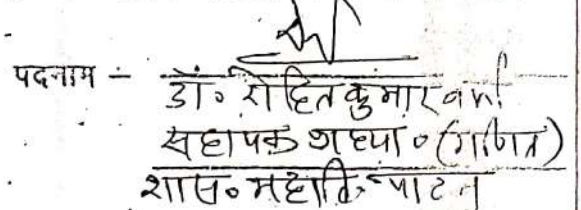 पदनाम - डॉ. रोहित कुमार वर्मा
सहायक प्राध्या. (गणित)
शास. महावि. पाटन